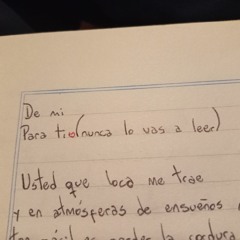 De mi
Para ti (nunca lo vas a leer)
Usted que loca me trae
y en atmósferas de ensueños
perder la cordura